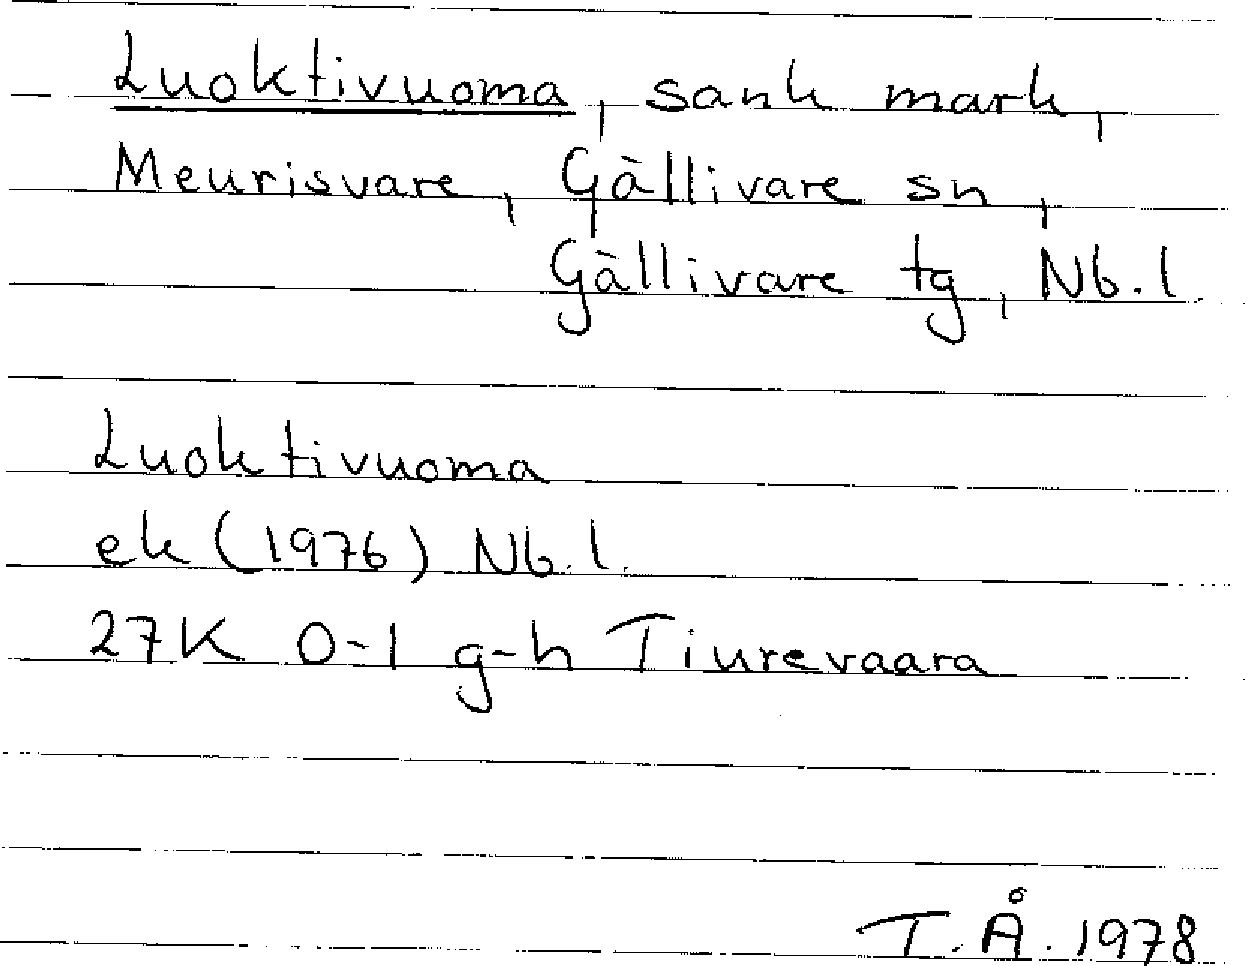 Luoktivuoma, sank mark,
Meurisvare, Gällivare sn,
Gällivare tg, Nb. l
Luoktivuoma
ek (1976) Nb. l.
27K 0-1 g-h Tiurevaara
T. Å. 1978